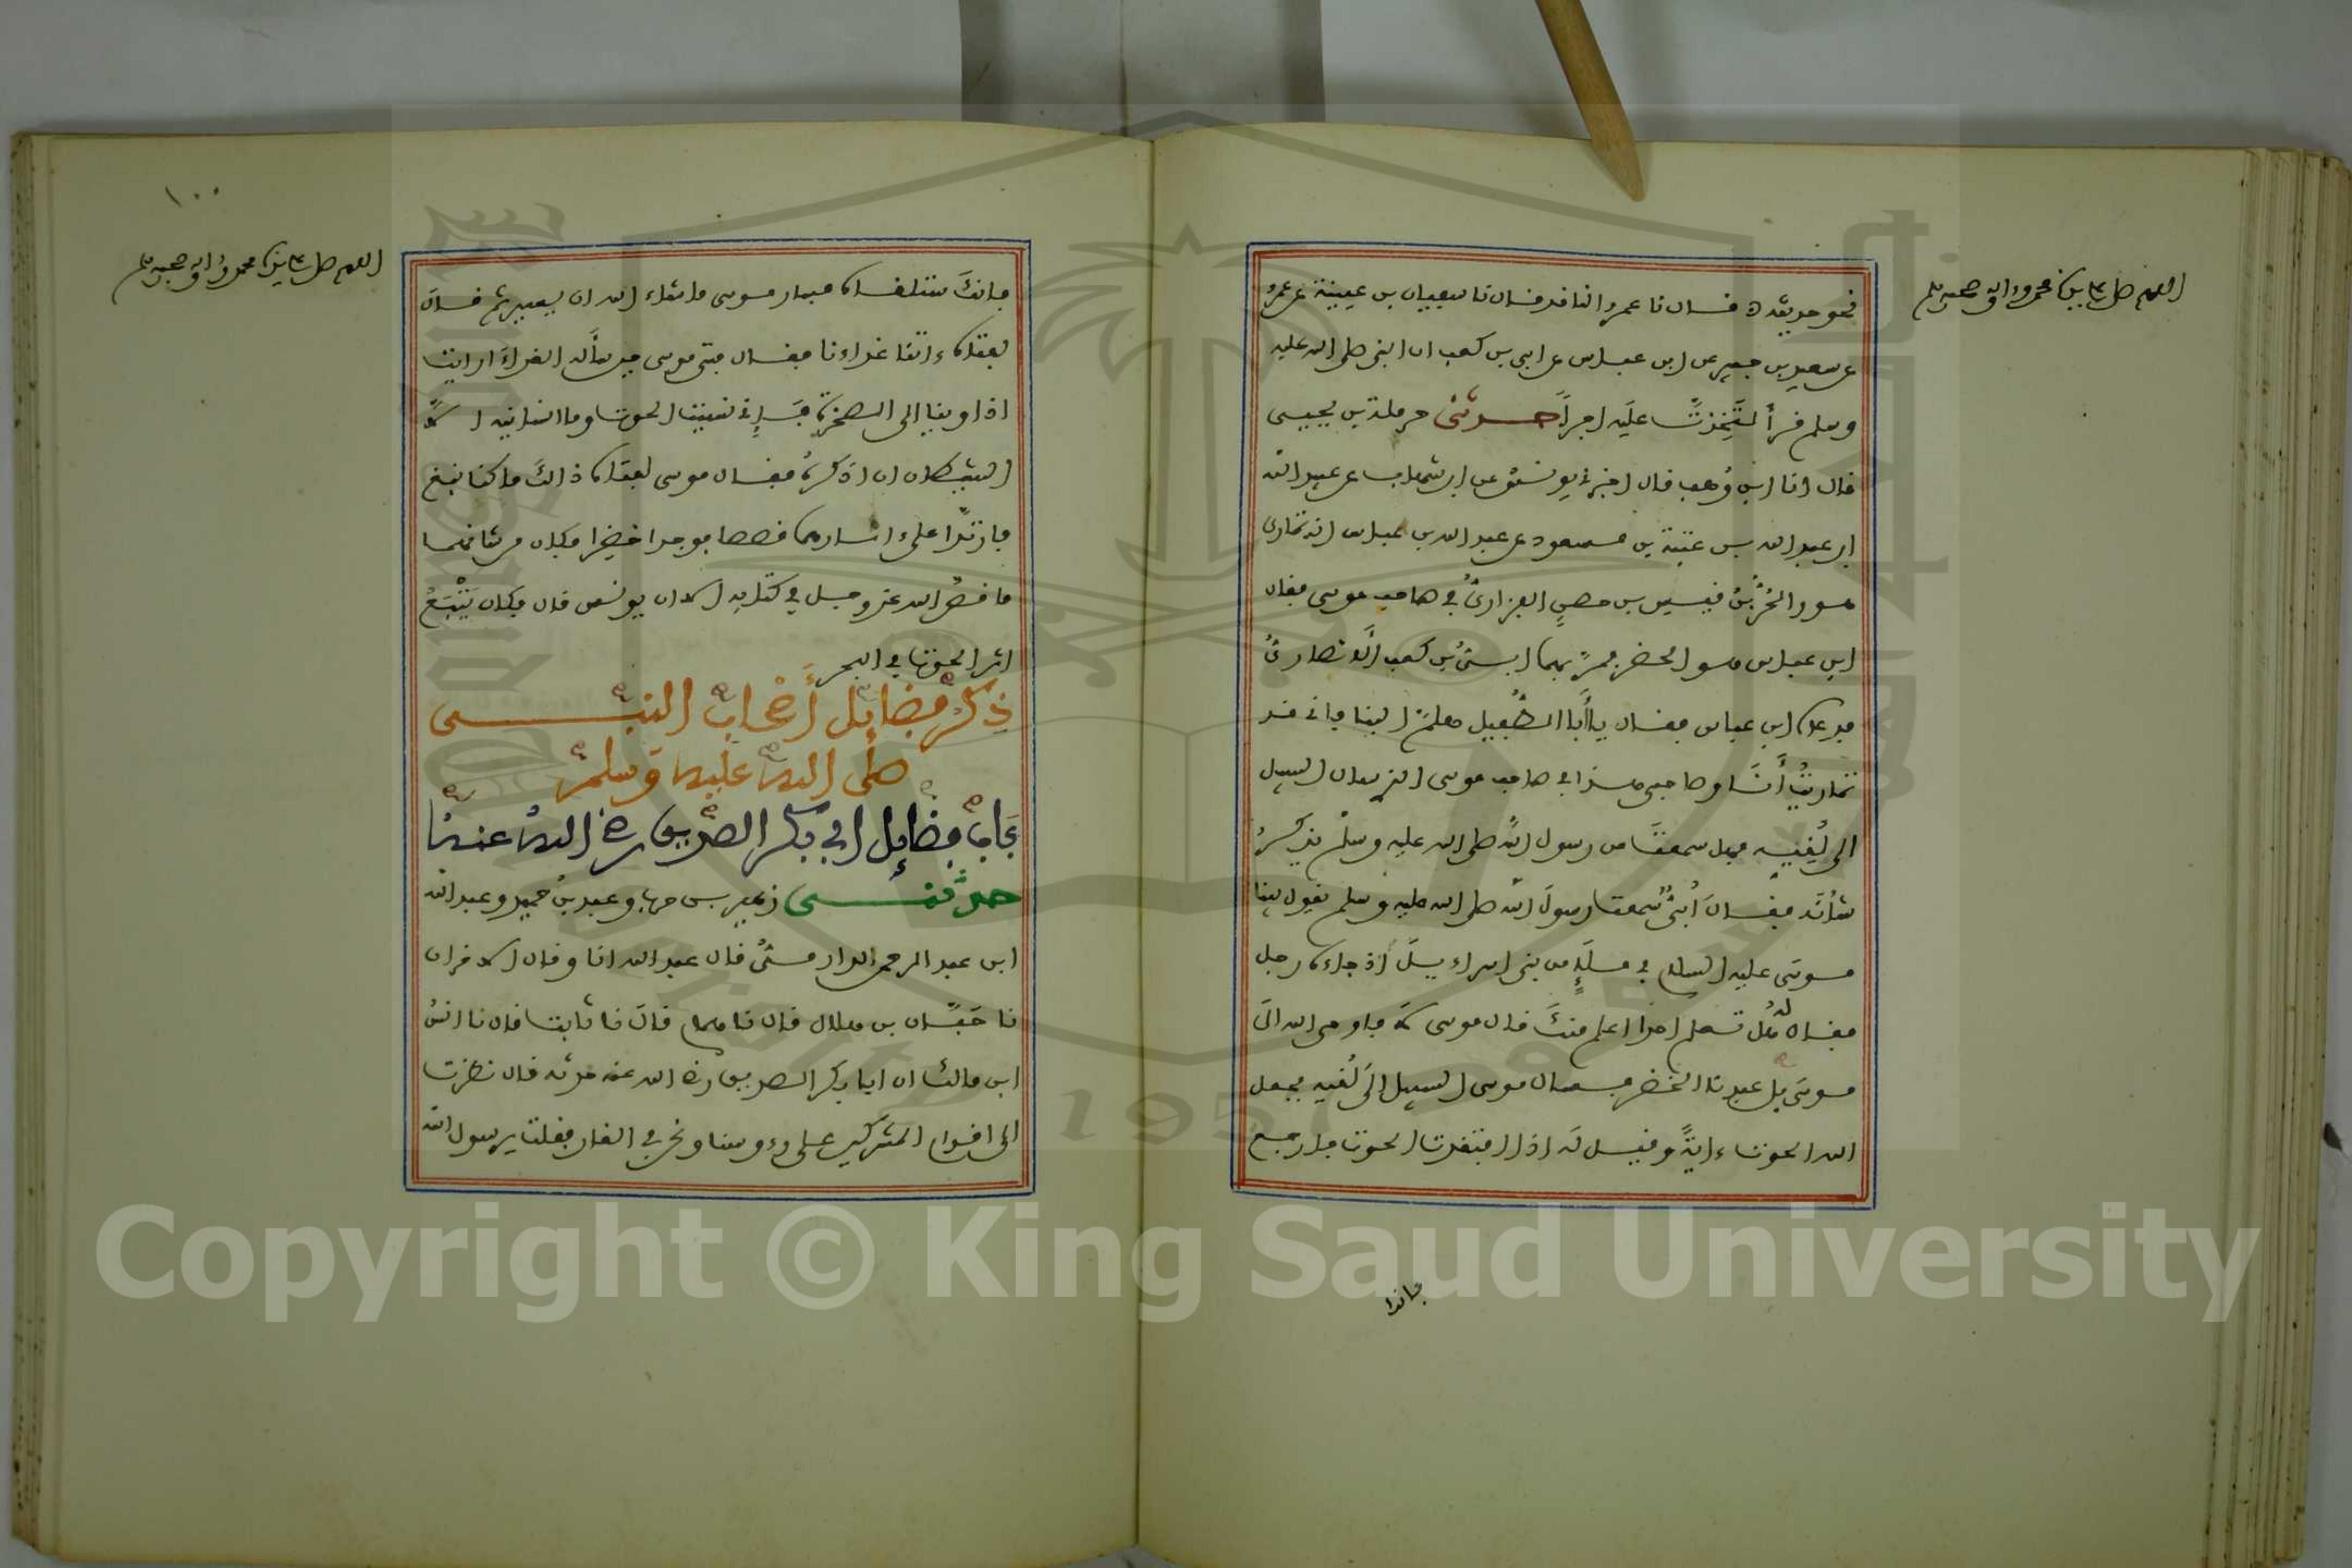 نحو حديثهم قال نا عمرو الناقد قال نا سفيان بن عيينة عن عمرو
عن سعيد بن جبير عن ابن عباس عن ابي بن كعب ان النبي صلى الله عليه
وسلم قرأ لتَّخِذتَّ عليه اجراً حدثني حرملة بن يحيى
قال انا ابن وهب قال اخبرني يونس عن ابن شهاب عن عبيد الله
ابن عبد الله بن عتبة بن مسعود عن عبد الله بن عباس انه تمارى
هو والحُرُّ بنُ قيس بن حصن الفزاريُّ في صاحب موسى فقال
ابن عباس هو الخضر فمرّ بهما ابيُّ بن كعب الأنصاريُّ
فدعاه ابن عباس فقال يا أبا الطُّفيل هلمَّ الينا فاني قد
تماريتُ أنَا وصاحبي هذا في صاحب موسى الذي سال السبيل
الى لُقِيّه فهل سمعتَ من رسول الله صلى الله عليه وسلم يذكرُ
شأنَه فقال أُبيٌّ سمعت رسولَ الله صلى الله عليه وسلم يقول بينا
موسى عليه السلام في ملإٍ من بني اسراءيلَ اذ جاءه رجل
فقال له هل تعلم احدا اعلم منكَ قال موسى لا فاوحى الله الى
موسى بل عبدنا الخضر فسال موسى السبيل الى لُقيه فجعل
الله الحوت ءايةً وقيل له اذا افتقدت الحوت فارجع
فانك
اللهم صل على سيدنا محمد وءاله وصحبه وسلم
١٠٠
اللهم صل على سيدنا محمد وءاله وصحبه وسلم
فانكَ ستلقاه فسار موسى ما شاء الله ان يسير ثم قال
لفتاه ءاتنا غداءنا فقال فتى موسى حين سأله الغداءَ ارايت
اذ اوينا الى الصخرة فإني نسيت الحوت وما انسانيه الا
الشيطان ان اذكرهُ فقال موسى لفتاه ذالك ما كنا نبغ
فارتدّا على ءاثارهما قصصا فوجدا خضِرا فكان من شانهما
ما قصَّ الله عز وجل في كتابه الا ان يونس قال فكان يَتْبَعُ
اثر الحوت في البحر
ذِكْرُ فضايل أَصْحاب النبي
صلى الله عليه وسلم
بَاب فضايل ابي بكر الصديق رضي الله عنه
حدثني زهير بن حرب وعبد بنُ حميد وعبد الله
ابن عبد الرحمن الدارميُّ قال عبد الله انا وقال الاخران
نا حَبَّان بن هلال قال نا همام قال نا ثابت قال نا انسُ
ابن مالك ان ابا بكر الصديق رضي الله عنه حدثه قال نظرت
الى اقدام المشركين على رءوسنا ونحن في الغار فقلت يرسول الله
Copyright © King Saud University
1957